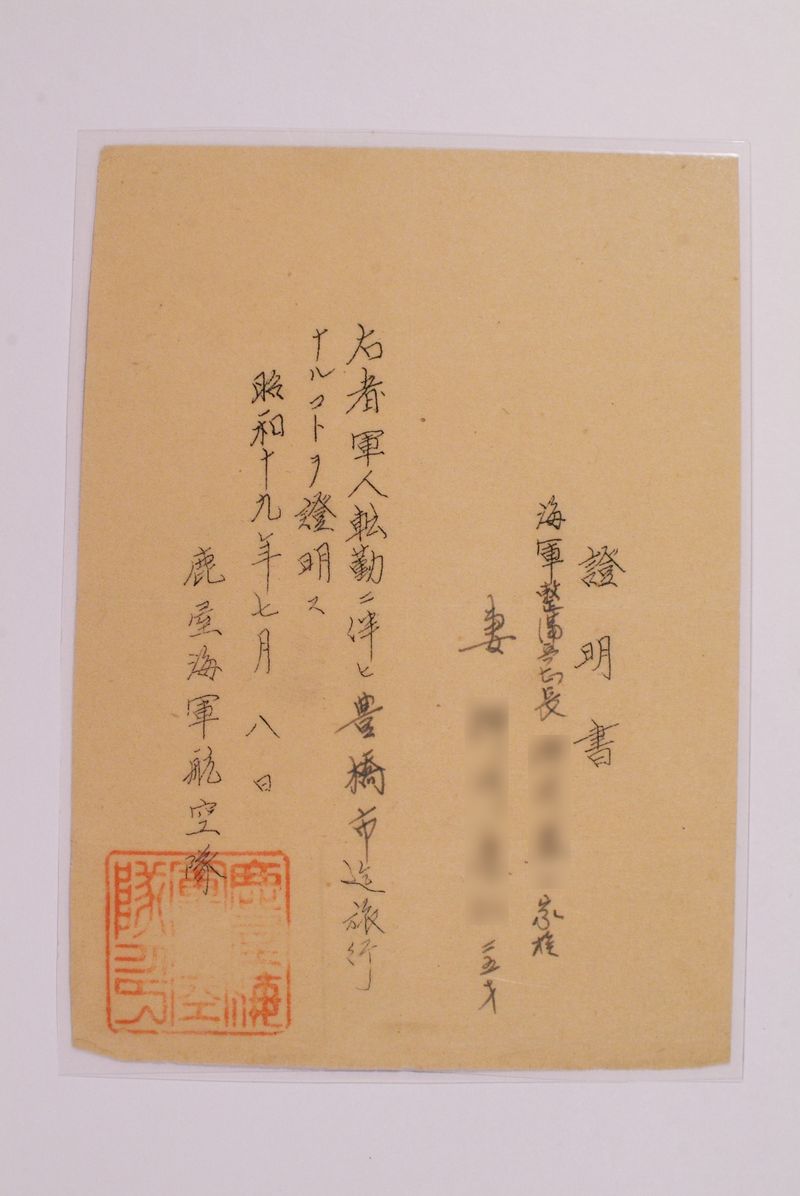 證明書
海軍整備兵曹長 家族
妻 二五才
右者軍人転勤ニ伴ヒ豊橋市迄旅行
ナルコトヲ證明ス
昭和十九年七月八日
鹿屋海軍航空隊
鹿屋海
軍航空
隊